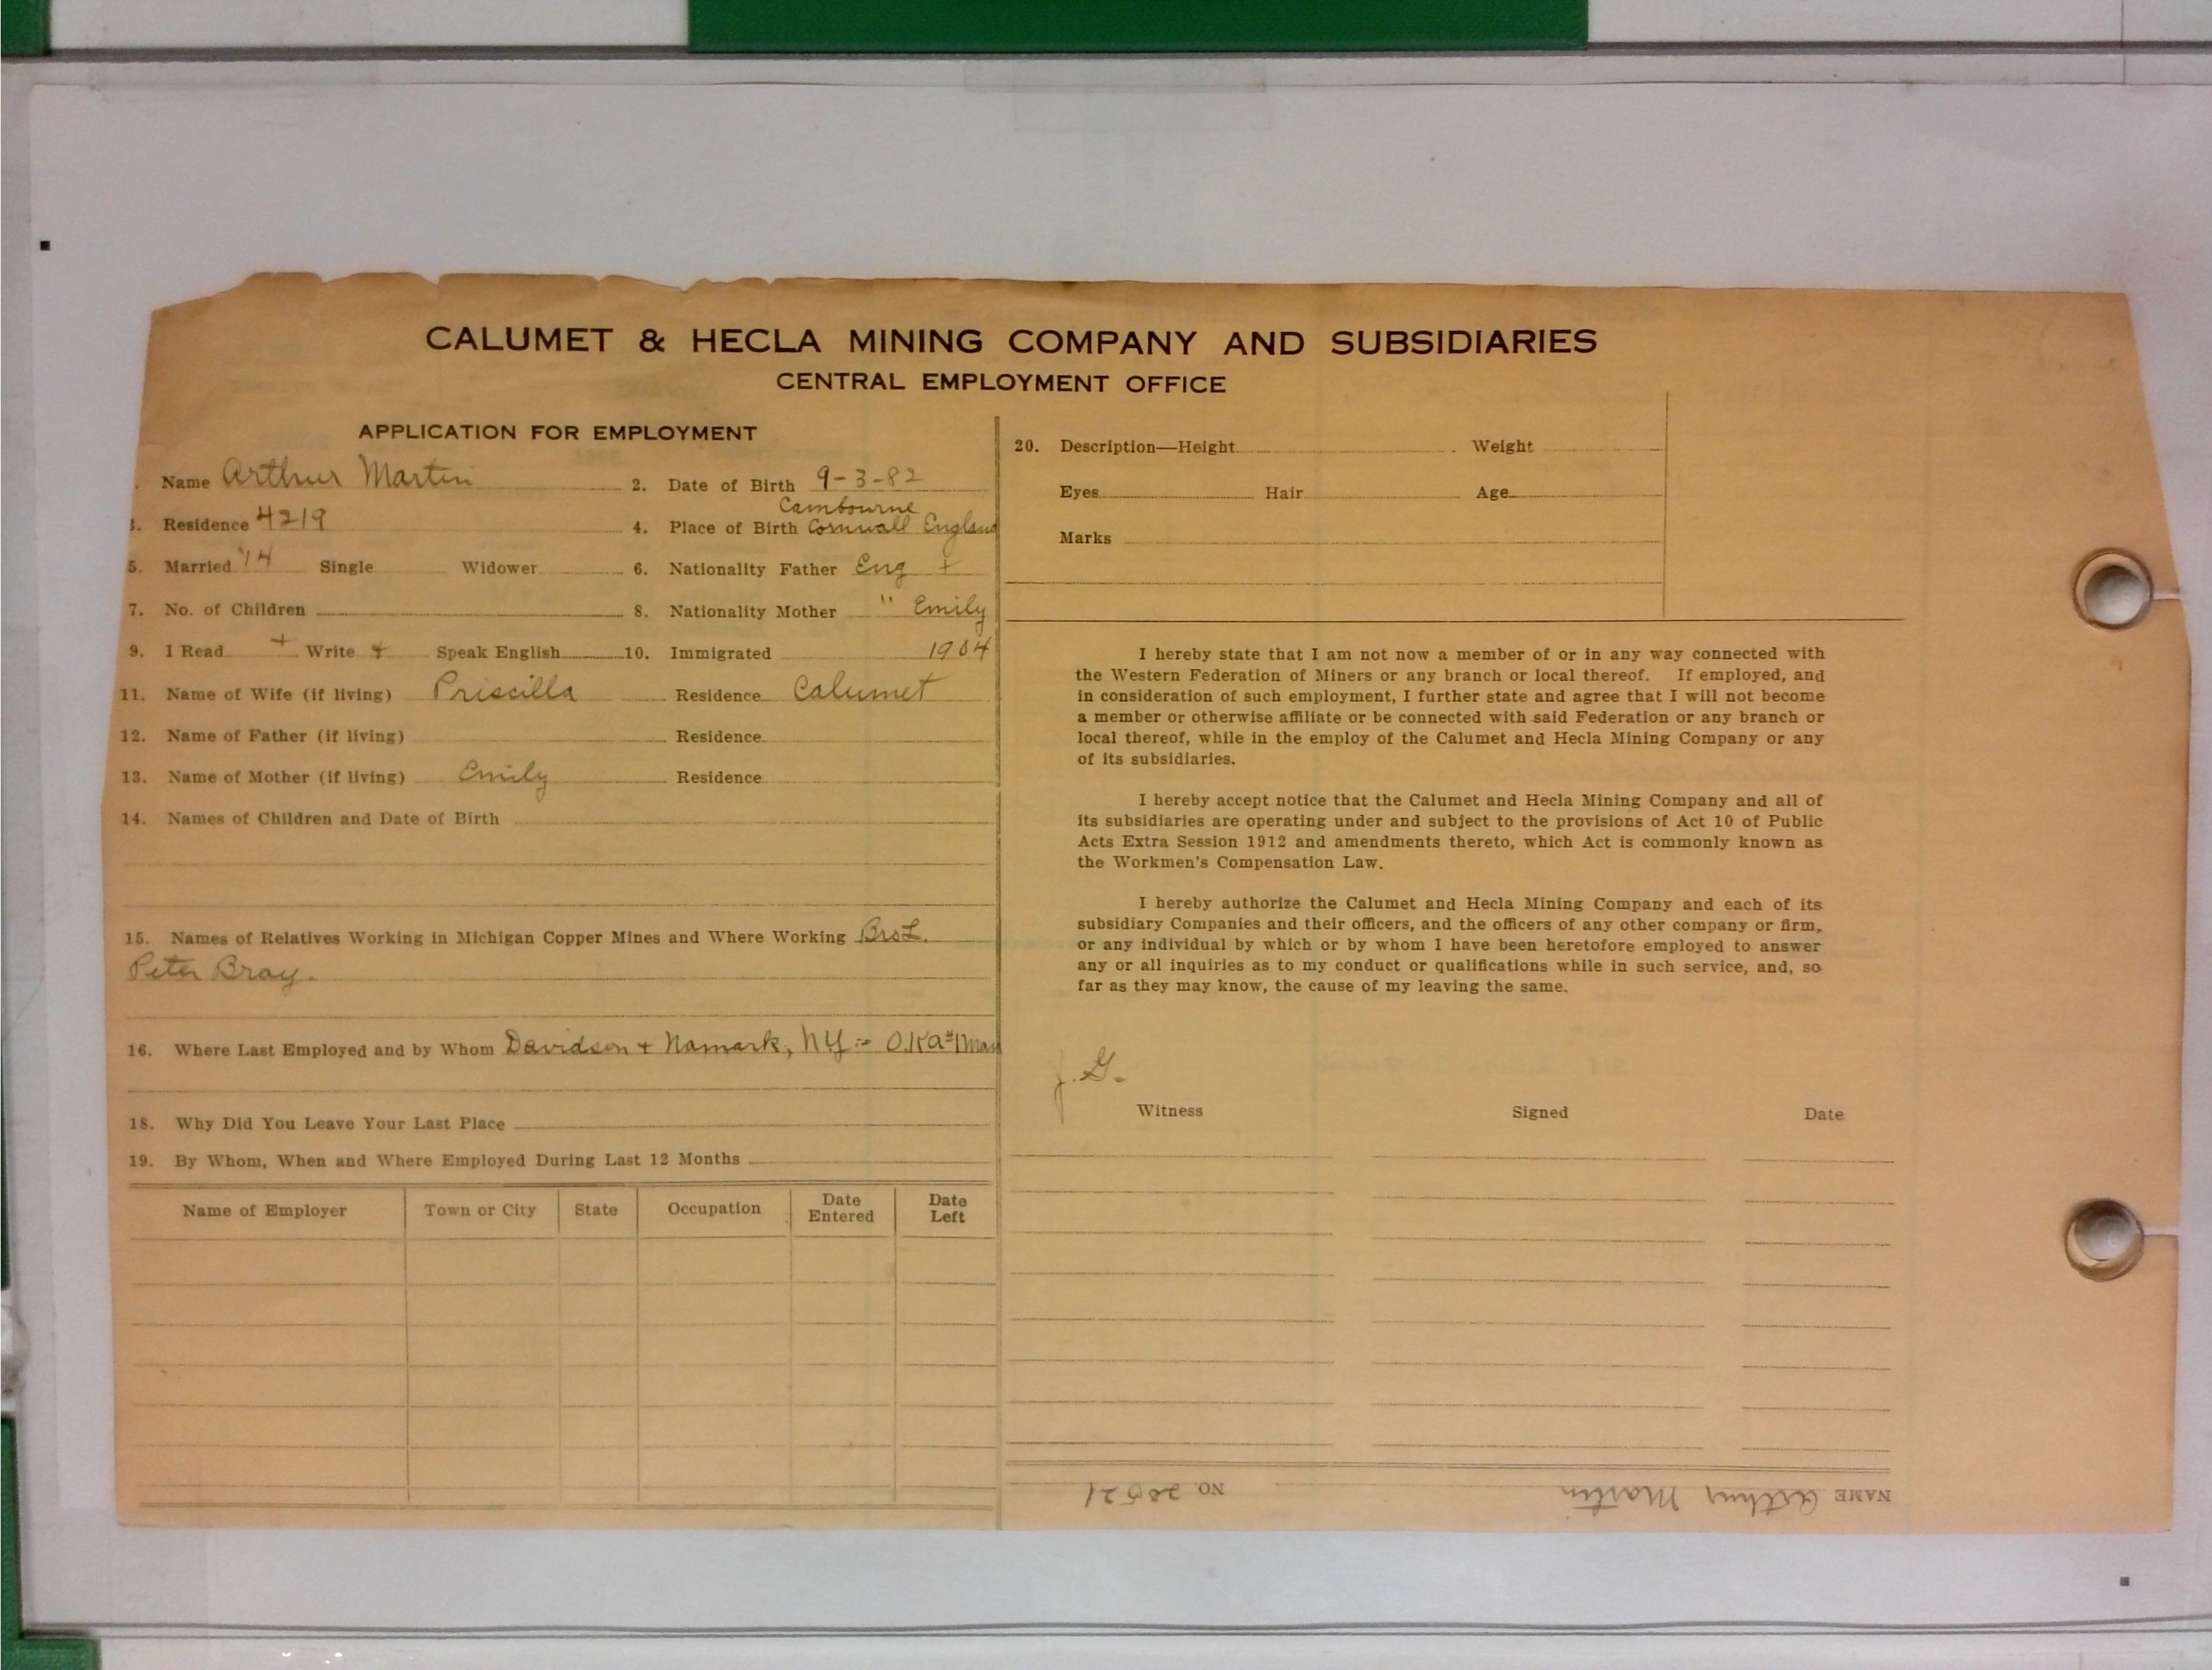 CALUMET & HECLA MINING COMPANY AND SUBSIDIARIES
CENTRAL EMPLOYMENT OFFICE
APPLICATION FOR EMPLOYMENT
. Name Arthur Martin 2. Date of Birth 9-3-82
Cambourne
3. Residence 4219 4. Place of Birth Cornwall England
5. Married '14 Single Widower 6. Nationality Father Eng +
7. No. of Children 8. Nationality Mother " Emily
9. I Read + Write + Speak English 10. Immigrated 1904
11. Name of Wife (if living) Priscilla Residence Calumet
12. Name of Father (if living) Residence
13. Name of Mother (if living) Emily Residence
14. Names of Children and Date of Birth
15. Names of Relatives Working in Michigan Copper Mines and Where Working BroL.
Peter Bray.
16. Where Last Employed and by Whom Davidson + Namark, NY :- O.K a #1 Man
18. Why Did You Leave Your Last Place
19. By Whom, When and Where Employed During Last 12 Months
Name of Employer Town or City State Occupation Date Entered Date Left
20. Description—Height Weight
Eyes Hair Age
Marks
I hereby state that I am not now a member of or in any way connected with
the Western Federation of Miners or any branch or local thereof. If employed, and
in consideration of such employment, I further state and agree that I will not become
a member or otherwise affiliate or be connected with said Federation or any branch or
local thereof, while in the employ of the Calumet and Hecla Mining Company or any
of its subsidiaries.
I hereby accept notice that the Calumet and Hecla Mining Company and all of
its subsidiaries are operating under and subject to the provisions of Act 10 of Public
Acts Extra Session 1912 and amendments thereto, which Act is commonly known as
the Workmen's Compensation Law.
I hereby authorize the Calumet and Hecla Mining Company and each of its
subsidiary Companies and their officers, and the officers of any other company or firm,
or any individual by which or by whom I have been heretofore employed to answer
any or all inquiries as to my conduct or qualifications while in such service, and, so
far as they may know, the cause of my leaving the same.
J. G.
Witness Signed Date
NAME Arthur Martin NO. 20521